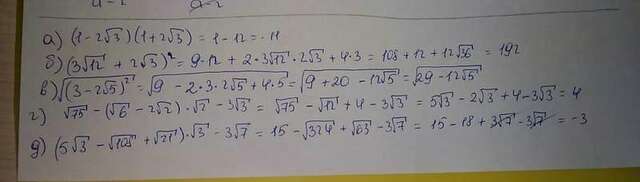 а) (1-2√3)(1+2√3) = 1-12 = -11
б) (3√12 + 2√3)² = 9·12 + 2·3√12·2√3 + 4·3 = 108 + 12 + 12√36 = 192
в) √(3-2√5)² = √9 - 2·3·2√5 + 4·5 = √9 + 20 - 12√5 = √29-12√5
г) √75 - (√6 - 2√2)·√2 - 3√3 = √75 - √12 + 4 - 3√3 = 5√3 - 2√3 + 4 - 3√3 = 4
д) (5√3 - √108 + √21)·√3 - 3√7 = 15 - √324 + √63 - 3√7 = 15 - 18 + 3√7 - 3√7 = -3